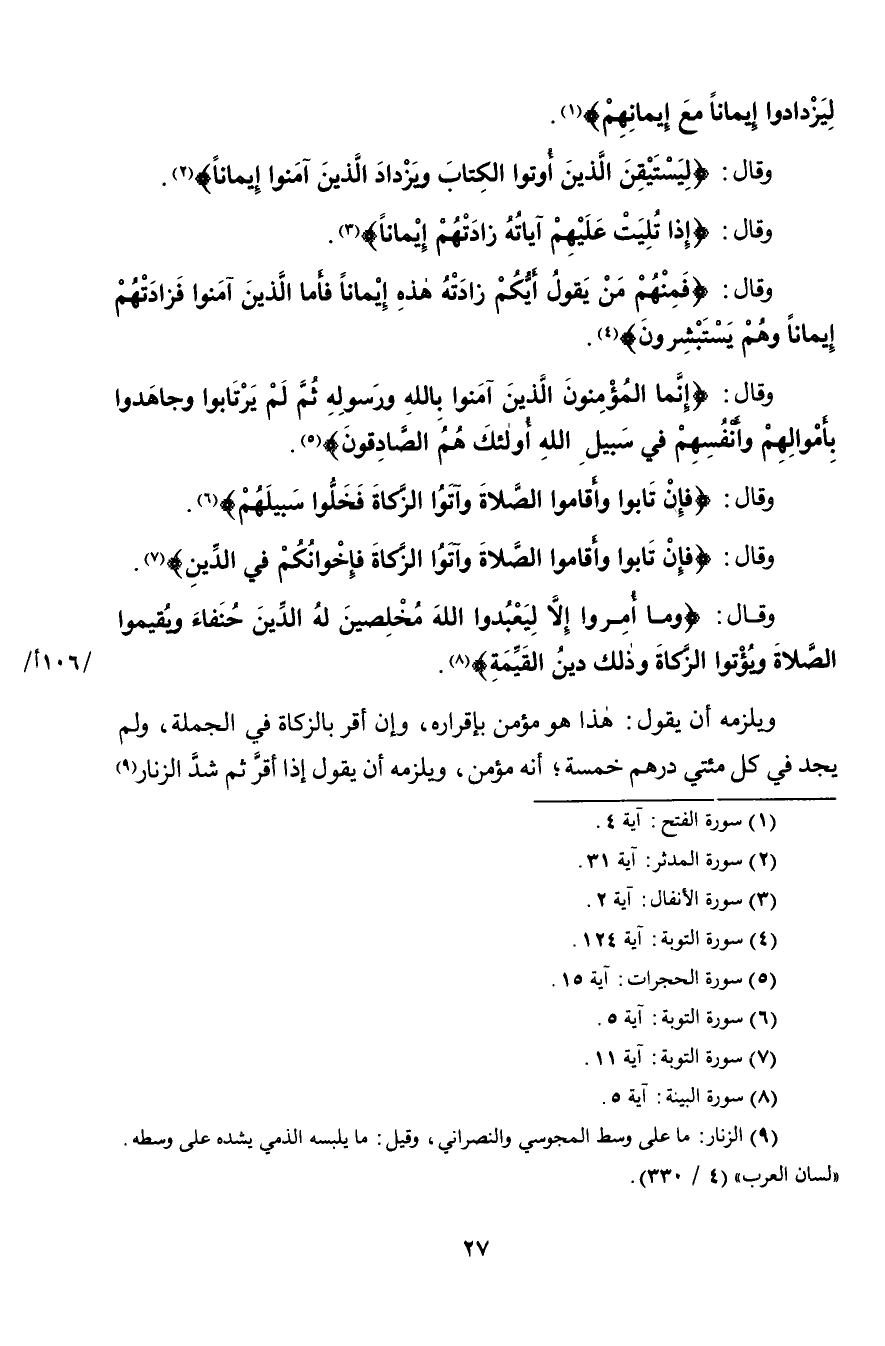 لِيَزْدادوا إيماناً معَ إيمانِهِمْ﴾(١).
وقال: ﴿لِيَسْتَيْقِنَ الَّذينَ أُوتوا الكِتابَ ويَزْدادَ الَّذينَ آمَنوا إيماناً﴾(٢).
وقال: ﴿إذا تُلِيَتْ عَلَيْهِمْ آياتُهُ زادَتْهُمْ إيْماناً﴾(٣).
وقال: ﴿فَمِنْهُمْ مَنْ يَقولُ أَيُّكُمْ زادَتْهُ هٰذهِ إيْماناً فَأَما الَّذينَ آمَنوا فَزادَتْهُمْ
إيماناً وهُمْ يَسْتَبْشِرونَ﴾(٤).
وقال: ﴿إنَّما المُؤْمِنونَ الَّذينَ آمَنوا بِاللهِ ورَسولِهِ ثُمَّ لَمْ يَرْتَابوا وجاهَدوا
بِأَمْوالِهِمْ وأَنْفُسِهِمْ في سَبيلِ اللهِ أُولٰئكَ هُمُ الصَّادِقونَ﴾(٥).
وقال: ﴿فإنْ تَابوا وأَقاموا الصَّلاةَ وآتَوُا الزَّكاةَ فَخَلُّوا سَبيلَهُمْ﴾(٦).
وقال: ﴿فإنْ تَابوا وأَقاموا الصَّلاةَ وآتَوُا الزَّكاةَ فإخْوانُكُمْ في الدِّينِ﴾(٧).
وقـال: ﴿ومـا أُمِـروا إلَّا لِيَعْبُدوا اللهَ مُخْلِصينَ لهُ الدِّينَ حُنَفاءَ ويُقيموا
الصَّلاةَ ويُؤْتوا الزَّكاةَ وذٰلك دينُ القَيِّمَةِ﴾(٨). /١٠٦أ/
ويلزمه أن يقول: هٰذا هو مؤمن بإقراره، وإن أقر بالزكاة في الجملة، ولم
يجد في كل مئتي درهم خمسة؛ أنه مؤمن، ويلزمه أن يقول إذا أقرَّ ثم شدَّ الزنار(٩)
(١) سورة الفتح: آية ٤.
(٢) سورة المدثر: آية ٣١.
(٣) سورة الأنفال: آية ٢.
(٤) سورة التوبة: آية ١٢٤.
(٥) سورة الحجرات: آية ١٥.
(٦) سورة التوبة: آية ٥.
(٧) سورة التوبة: آية ١١.
(٨) سورة البينة: آية ٥.
(٩) الزنار: ما على وسط المجوسي والنصراني، وقيل: ما يلبسه الذمي يشده على وسطه.
«لسان العرب» (٤ / ٣٣٠).
٢٧